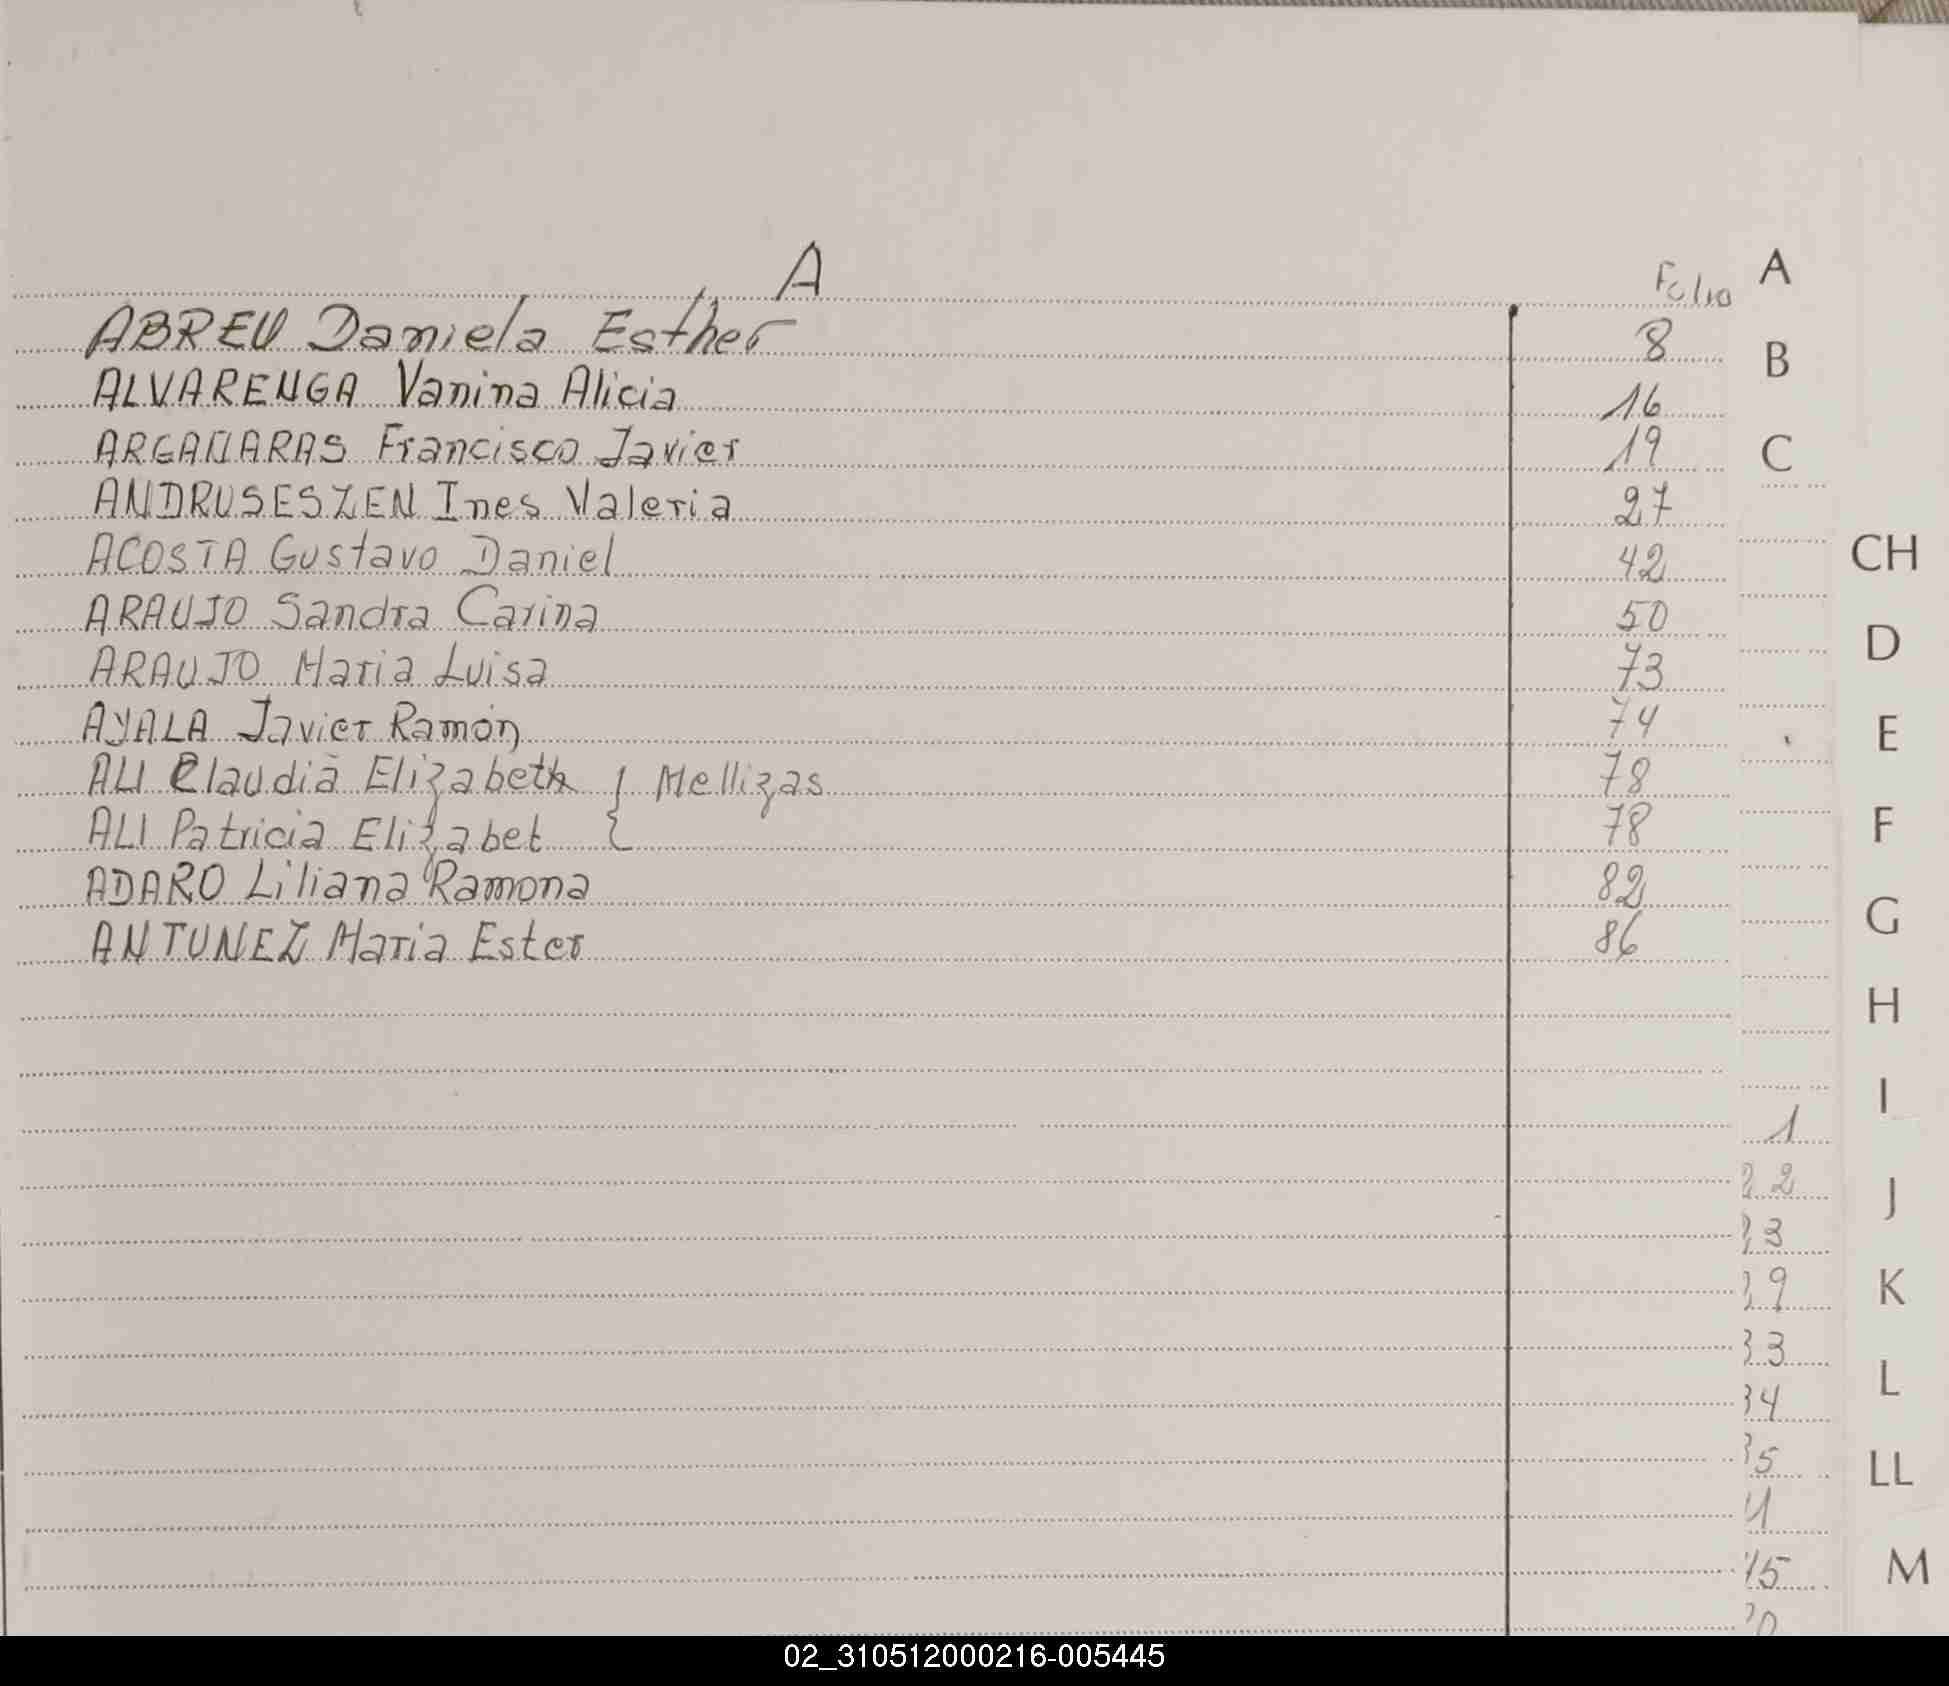 A
Folio
ABREU Daniela Esther 8
ALVARENGA Vanina Alicia 16
ARGAÑARAS Francisco Javier 19
ANDRUSESZEN Ines Valeria 27
ACOSTA Gustavo Daniel 42
ARAUJO Sandra Carina 50
ARAUJO Maria Luisa 73
AYALA Javier Ramón 74
ALI Claudia Elizabeth { Mellizas 78
ALI Patricia Elizabet 78
ADARO Liliana Ramona 82
ANTUNEZ Maria Ester 86
A
B
C
CH
D
E
F
G
H
I
J
K
L
LL
M
1
2
3
9
3
4
5
1
5
0
02_310512000216-005445